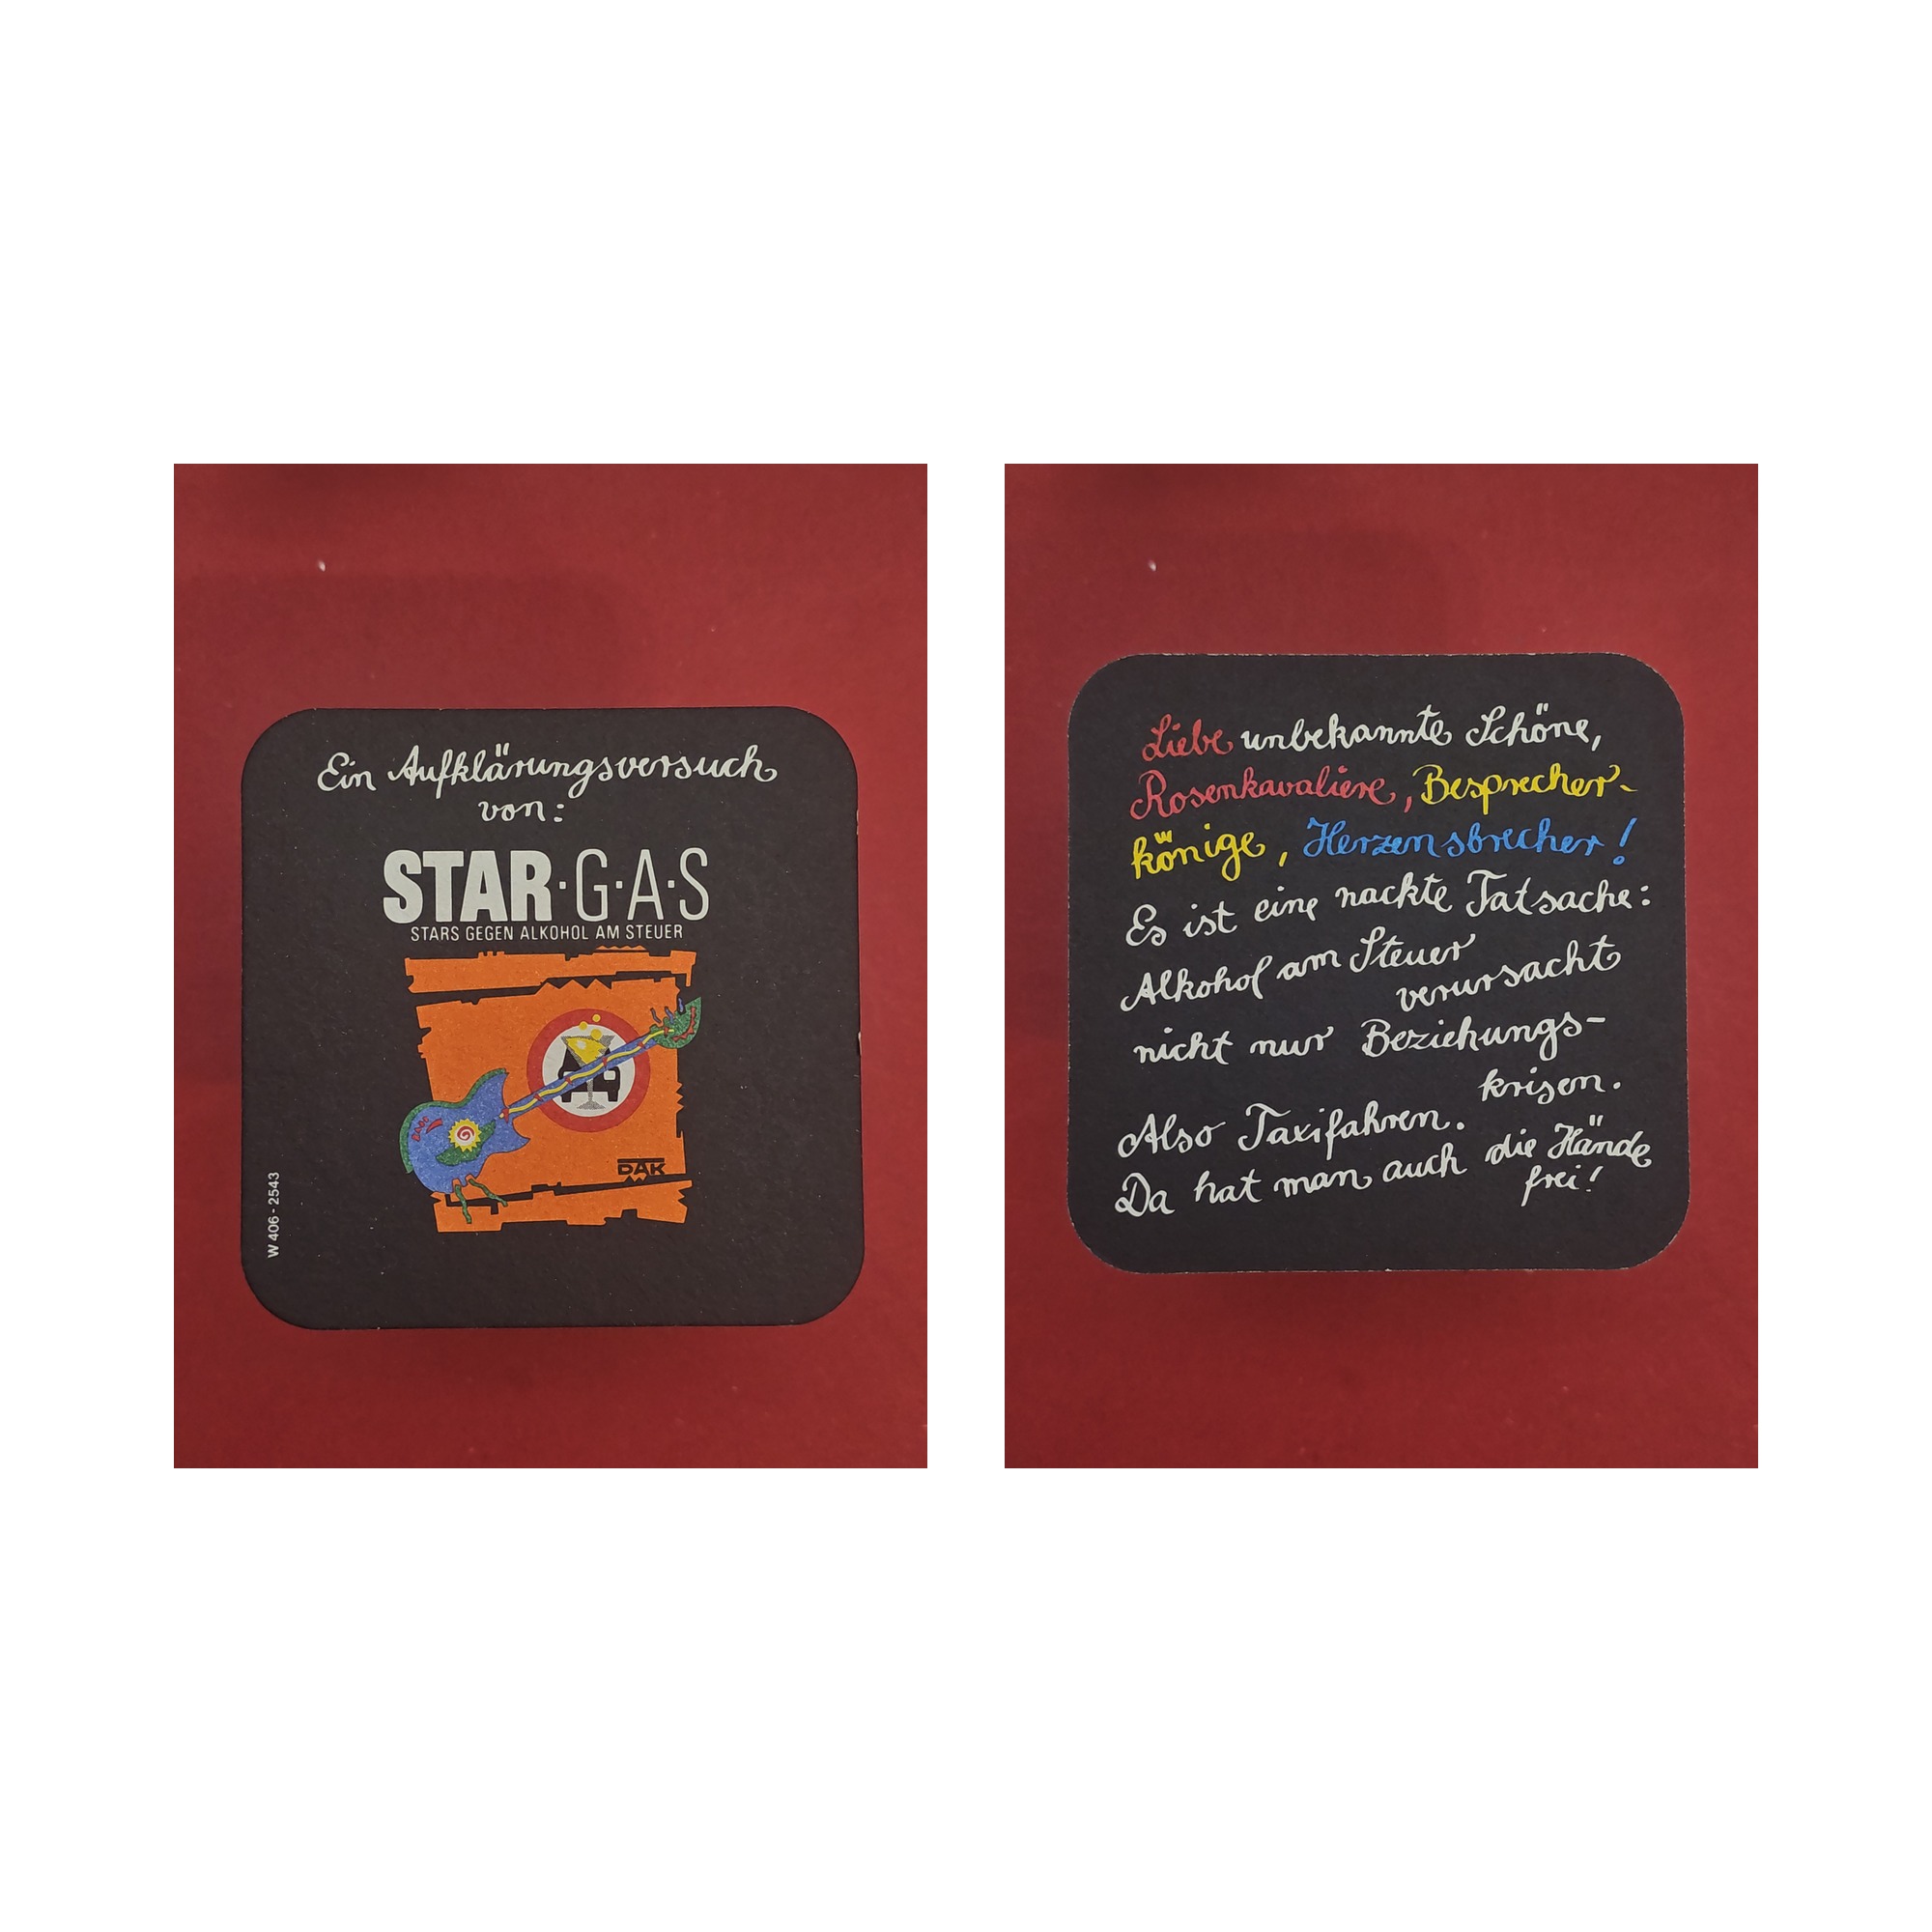 Ein Aufklärungsversuch
von:
STAR·G·A·S
STARS GEGEN ALKOHOL AM STEUER
DAK
W 406 - 2543
Liebe unbekannte Schöne,
Rosenkavaliere, Besprecher-
könige, Herzensbrecher!
Es ist eine nackte Tatsache:
Alkohol am Steuer
verursacht
nicht nur Beziehungs-
krisen.
Also Taxifahren.
Da hat man auch die Hände
frei!